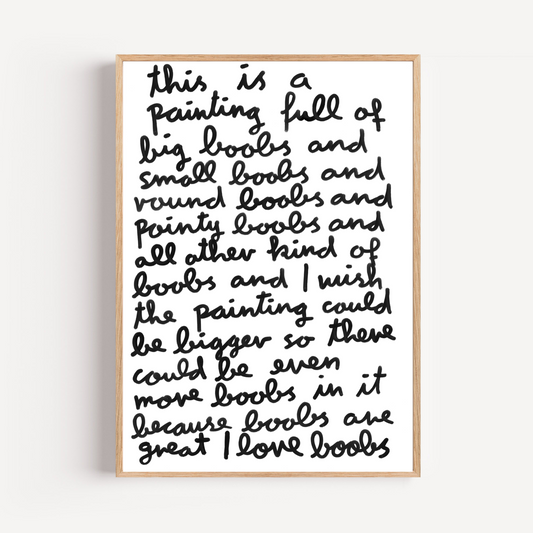 this is a
painting full of
big boobs and
small boobs and
round boobs and
pointy boobs and
all other kind of
boobs and I wish
the painting could
be bigger so there
could be even
more boobs in it
because boobs are
great I love boobs